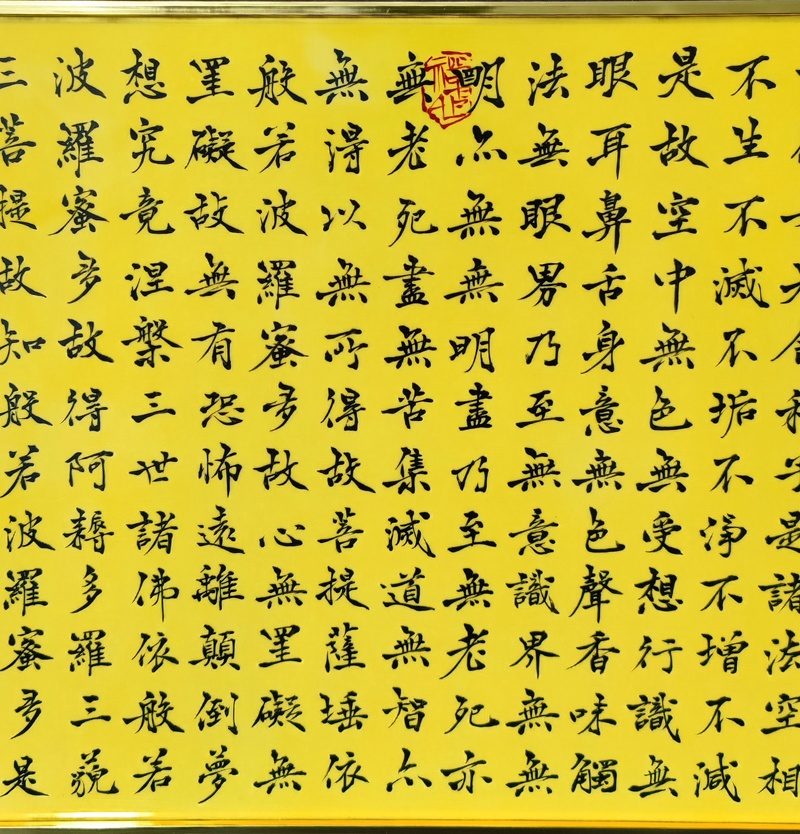 是舍利子是諸法空相
不生不滅不垢不淨不增不減
是故空中無色無受想行識無
眼耳鼻舌身意無色聲香味觸
法無眼界乃至無意識界無無
明亦無無明盡乃至無老死亦
無老死盡無苦集滅道無智亦
無得以無所得故菩提薩埵依
般若波羅蜜多故心無罣礙無
罣礙故無有恐怖遠離顛倒夢
想究竟涅槃三世諸佛依般若
波羅蜜多故得阿耨多羅三藐
三菩提故知般若波羅蜜多是